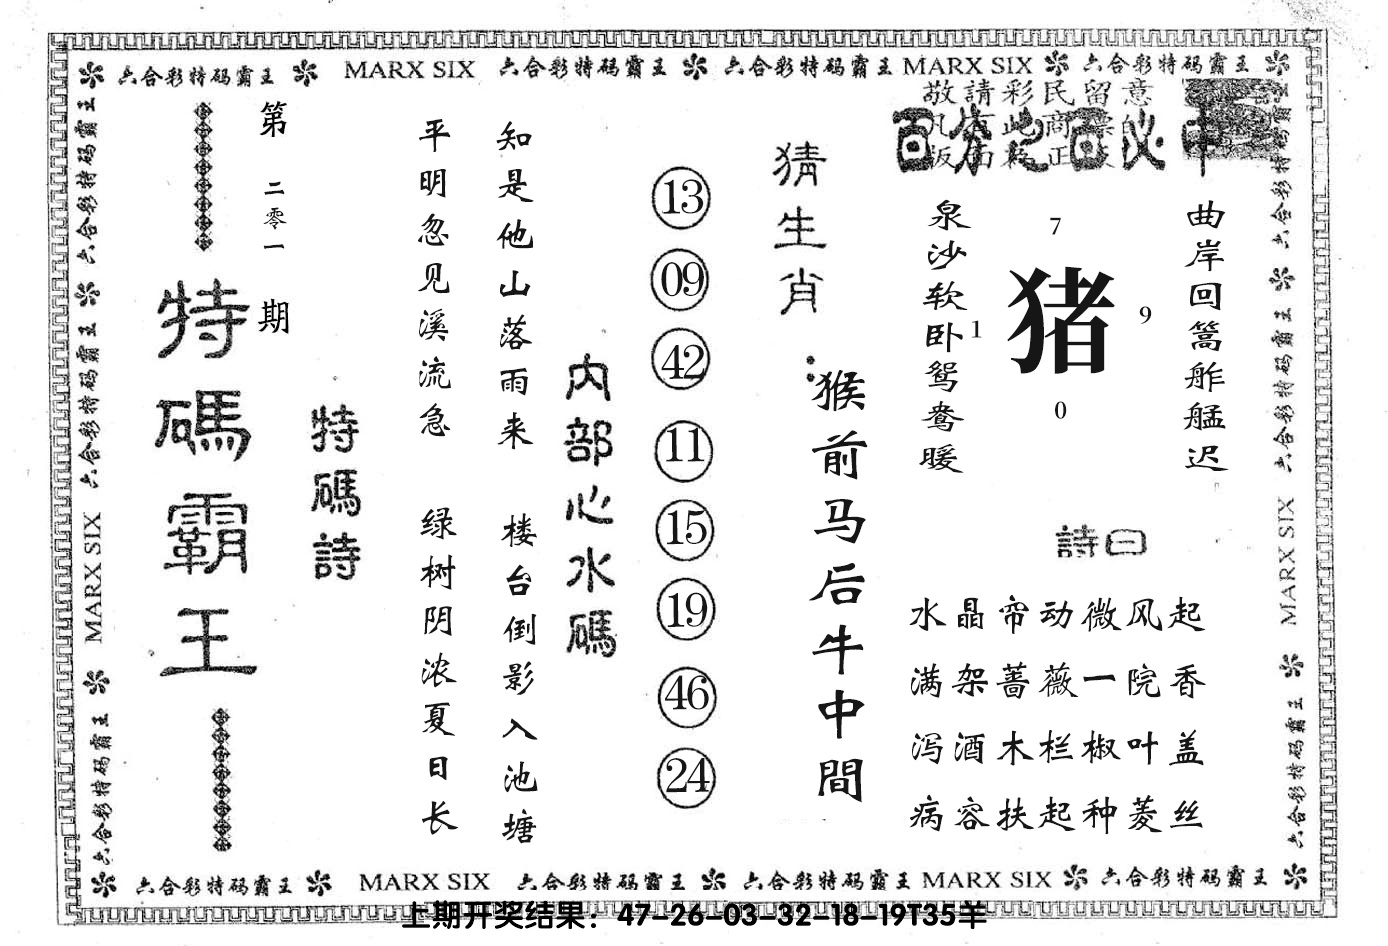 六合彩特码霸王 MARX SIX 六合彩特码霸王 六合彩特码霸王 MARX SIX 六合彩特码霸王
敬請彩民留意
曲岸回篙舴艋迟
泉沙软卧鸳鸯暖
7
猪
1
9
0
詩曰
水晶帘动微风起
满架蔷薇一院香
泻酒木栏椒叶盖
病容扶起种菱丝
猜生肖：
猴前马后牛中間
13
09
42
11
15
19
46
24
内部心水碼
知是他山落雨来
楼台倒影入池塘
平明忽见溪流急
绿树阴浓夏日长
特碼詩
第二零一期
特碼霸王
六合彩特码霸王 六合彩特码霸王 MARX SIX 六合彩特码霸王
六合彩特码霸王 六合彩特码霸王 MARX SIX 六合彩特码霸王
六合彩特码霸王 MARX SIX 六合彩特码霸王 六合彩特码霸王 MARX SIX 六合彩特码霸王
上期开奖结果：47-26-03-32-18-19T35羊